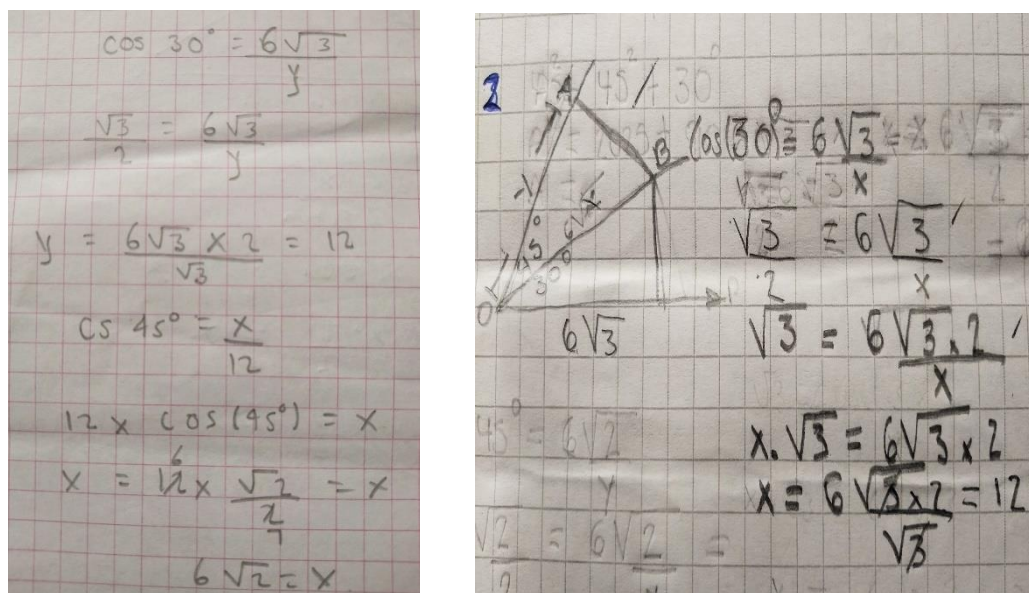 cos 30° = 6√3 / y
√3 / 2 = 6√3 / y
y = 6√3 × 2 / √3 = 12
cs 45° = x / 12
12 × cos (45°) = x
x = 12 6 × √2 / 2 1 = x
6√2 = x
2
A
B
O
45°
30°
6√3
cos(30)° = 6√3 / x
√3 / 2 = 6√3 / x
√3 = 6√3 . 2 / x
x . √3 = 6√3 × 2
x = 6√3 × 2 / √3 = 12
45° = 6√2 / y
√2 / 2 = 6√2